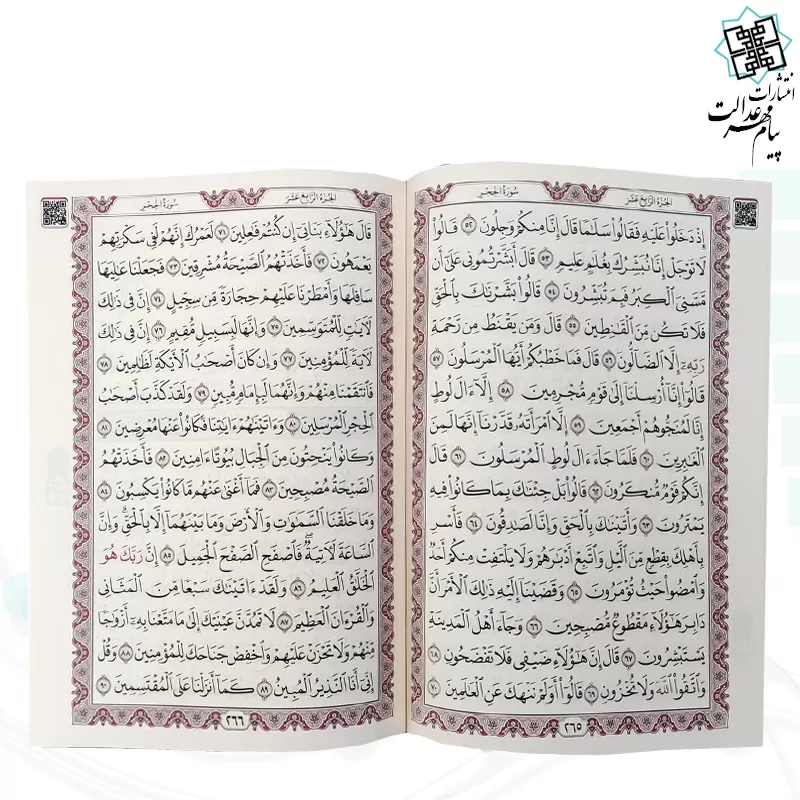 انتشارات
پیام مهر عدالت
الجزء الرابع عشر
سورة الحجر
إِذْ دَخَلُوا۟ عَلَيْهِ فَقَالُوا۟ سَلَـٰمًا قَالَ إِنَّا مِنكُمْ وَجِلُونَ ﴿٥٢﴾ قَالُوا۟
لَا تَوْجَلْ إِنَّا نُبَشِّرُكَ بِغُلَـٰمٍ عَلِيمٍ ﴿٥٣﴾ قَالَ أَبَشَّرْتُمُونِى عَلَىٰٓ أَن
مَّسَّنِىَ ٱلْكِبَرُ فَبِمَ تُبَشِّرُونَ ﴿٥٤﴾ قَالُوا۟ بَشَّرْنَـٰكَ بِٱلْحَقِّ
فَلَا تَكُن مِّنَ ٱلْقَـٰنِطِينَ ﴿٥٥﴾ قَالَ وَمَن يَقْنَطُ مِن رَّحْمَةِ
رَبِّهِۦٓ إِلَّا ٱلضَّآلُّونَ ﴿٥٦﴾ قَالَ فَمَا خَطْبُكُمْ أَيُّهَا ٱلْمُرْسَلُونَ ﴿٥٧﴾
قَالُوٓا۟ إِنَّآ أُرْسِلْنَآ إِلَىٰ قَوْمٍ مُّجْرِمِينَ ﴿٥٨﴾ إِلَّآ ءَالَ لُوطٍ
إِنَّا لَمُنَجُّوهُمْ أَجْمَعِينَ ﴿٥٩﴾ إِلَّا ٱمْرَأَتَهُۥ قَدَّرْنَآ إِنَّهَا لَمِنَ
ٱلْغَـٰبِرِينَ ﴿٦٠﴾ فَلَمَّا جَآءَ ءَالَ لُوطٍ ٱلْمُرْسَلُونَ ﴿٦١﴾ قَالَ
إِنَّكُمْ قَوْمٌ مُّنكَرُونَ ﴿٦٢﴾ قَالُوا۟ بَلْ جِئْنَـٰكَ بِمَا كَانُوا۟ فِيهِ
يَمْتَرُونَ ﴿٦٣﴾ وَأَتَيْنَـٰكَ بِٱلْحَقِّ وَإِنَّا لَصَـٰدِقُونَ ﴿٦٤﴾ فَأَسْرِ
بِأَهْلِكَ بِقِطْعٍ مِّنَ ٱلَّيْلِ وَٱتَّبِعْ أَدْبَـٰرَهُمْ وَلَا يَلْتَفِتْ مِنكُمْ أَحَدٌ
وَٱمْضُوا۟ حَيْثُ تُؤْمَرُونَ ﴿٦٥﴾ وَقَضَيْنَآ إِلَيْهِ ذَٰلِكَ ٱلْأَمْرَ أَنَّ
دَابِرَ هَـٰٓؤُلَآءِ مَقْطُوعٌ مُّصْبِحِينَ ﴿٦٦﴾ وَجَآءَ أَهْلُ ٱلْمَدِينَةِ
يَسْتَبْشِرُونَ ﴿٦٧﴾ قَالَ إِنَّ هَـٰٓؤُلَآءِ ضَيْفِى فَلَا تَفْضَحُونِ ﴿٦٨﴾
وَٱتَّقُوا۟ ٱللَّهَ وَلَا تُخْزُونِ ﴿٦٩﴾ قَالُوٓا۟ أَوَلَمْ نَنْهَكَ عَنِ ٱلْعَـٰلَمِينَ ﴿٧٠﴾
٢٦٥
الجزء الرابع عشر
سورة الحجر
قَالَ هَـٰٓؤُلَآءِ بَنَاتِىٓ إِن كُنتُمْ فَـٰعِلِينَ ﴿٧١﴾ لَعَمْرُكَ إِنَّهُمْ لَفِى سَكْرَتِهِمْ
يَعْمَهُونَ ﴿٧٢﴾ فَأَخَذَتْهُمُ ٱلصَّيْحَةُ مُشْرِقِينَ ﴿٧٣﴾ فَجَعَلْنَا عَـٰلِيَهَا
سَافِلَهَا وَأَمْطَرْنَا عَلَيْهِمْ حِجَارَةً مِّن سِجِّيلٍ ﴿٧٤﴾ إِنَّ فِى ذَٰلِكَ
لَـَٔايَـٰتٍ لِّلْمُتَوَسِّمِينَ ﴿٧٥﴾ وَإِنَّهَا لَبِسَبِيلٍ مُّقِيمٍ ﴿٧٦﴾ إِنَّ فِى ذَٰلِكَ
لَـَٔايَةً لِّلْمُؤْمِنِينَ ﴿٧٧﴾ وَإِن كَانَ أَصْحَـٰبُ ٱلْأَيْكَةِ لَظَـٰلِمِينَ ﴿٧٨﴾
فَٱنتَقَمْنَا مِنْهُمْ وَإِنَّهُمَا لَبِإِمَامٍ مُّبِينٍ ﴿٧٩﴾ وَلَقَدْ كَذَّبَ أَصْحَـٰبُ
ٱلْحِجْرِ ٱلْمُرْسَلِينَ ﴿٨٠﴾ وَءَاتَيْنَـٰهُمْ ءَايَـٰتِنَا فَكَانُوا۟ عَنْهَا مُعْرِضِينَ ﴿٨١﴾
وَكَانُوا۟ يَنْحِتُونَ مِنَ ٱلْجِبَالِ بُيُوتًا ءَامِنِينَ ﴿٨٢﴾ فَأَخَذَتْهُمُ
ٱلصَّيْحَةُ مُصْبِحِينَ ﴿٨٣﴾ فَمَآ أَغْنَىٰ عَنْهُم مَّا كَانُوا۟ يَكْسِبُونَ ﴿٨٤﴾
وَمَا خَلَقْنَا ٱلسَّمَـٰوَٰتِ وَٱلْأَرْضَ وَمَا بَيْنَهُمَآ إِلَّا بِٱلْحَقِّ وَإِنَّ
ٱلسَّاعَةَ لَـَٔاتِيَةٌ فَٱصْفَحِ ٱلصَّفْحَ ٱلْجَمِيلَ ﴿٨٥﴾ إِنَّ رَبَّكَ هُوَ
ٱلْخَلَّـٰقُ ٱلْعَلِيمُ ﴿٨٦﴾ وَلَقَدْ ءَاتَيْنَـٰكَ سَبْعًا مِّنَ ٱلْمَثَانِى
وَٱلْقُرْءَانَ ٱلْعَظِيمَ ﴿٨٧﴾ لَا تَمُدَّنَّ عَيْنَيْكَ إِلَىٰ مَا مَتَّعْنَا بِهِۦٓ أَزْوَٰجًا
مِّنْهُمْ وَلَا تَحْزَنْ عَلَيْهِمْ وَٱخْفِضْ جَنَاحَكَ لِلْمُؤْمِنِينَ ﴿٨٨﴾ وَقُلْ
إِنِّىٓ أَنَا ٱلنَّذِيرُ ٱلْمُبِينُ ﴿٨٩﴾ كَمَآ أَنزَلْنَا عَلَى ٱلْمُقْتَسِمِينَ ﴿٩٠﴾
٢٦٦